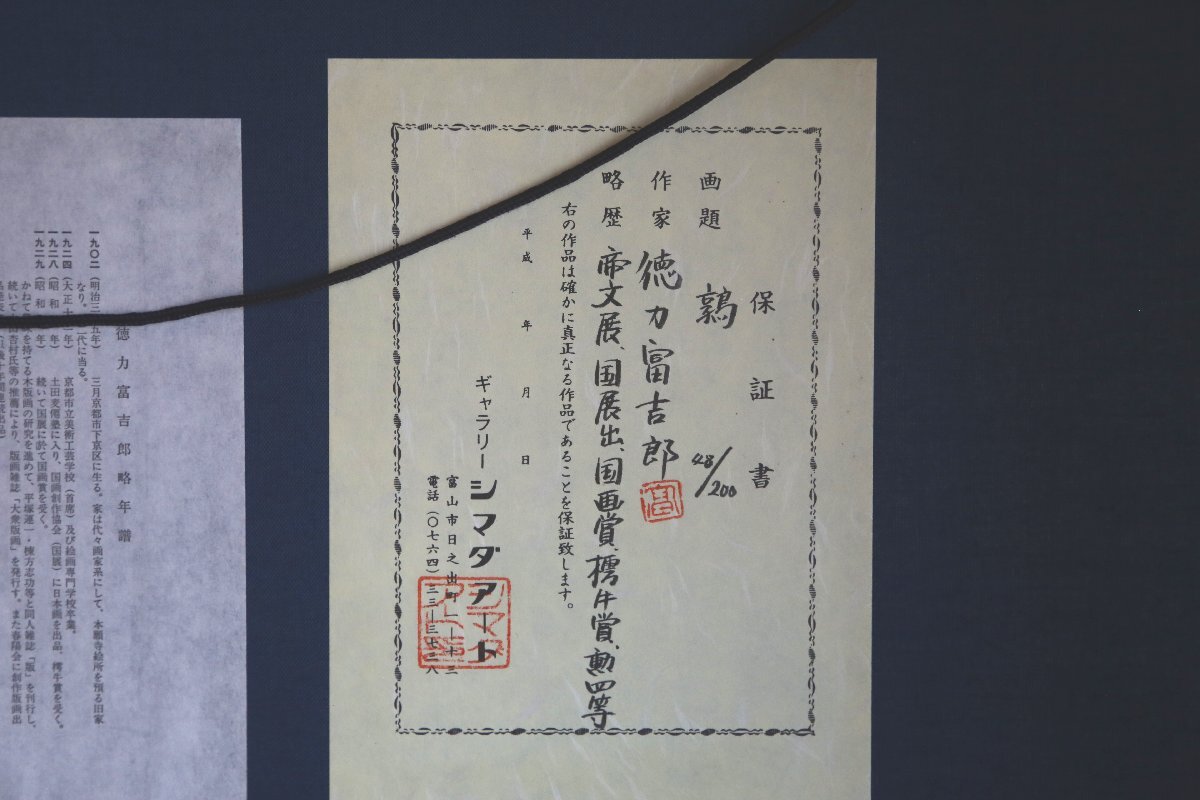 保証書
画題 鶉 48/200
作家 徳力富吉郎
略歴 帝文展、国展出、国画賞、樗牛賞、勲四等
右の作品は確かに真正なる作品であることを保証致します。
平成 年 月 日
ギャラリーシマダアート
富山市日之出町一―十三
電話(〇七六四)三三―三七三八
徳力富吉郎略年譜
一九〇二(明治三 五年) 三月京都市下京区に生る。家は代々画家系にして、本願寺絵所を預る旧家
なり。 二代に当る。
一九二四(大正十 年) 京都市立美術工芸学校(首席)及び絵画専門学校卒業。
一九二八(昭和 年) 土田麦僊塾に入り、国画創作協会(国展)に日本画を出品、樗牛賞を受く。
一九二九(昭和 年) 続いて国展に於て国画賞を受く。
かねて を持てる木版画の研究を進めて、平塚運一・棟方志功等と同人雑誌「版」を刊行し、
続いて 吉村氏等の推薦により、版画雑誌「大衆版画」を発行す。また春陽会に創作版画出